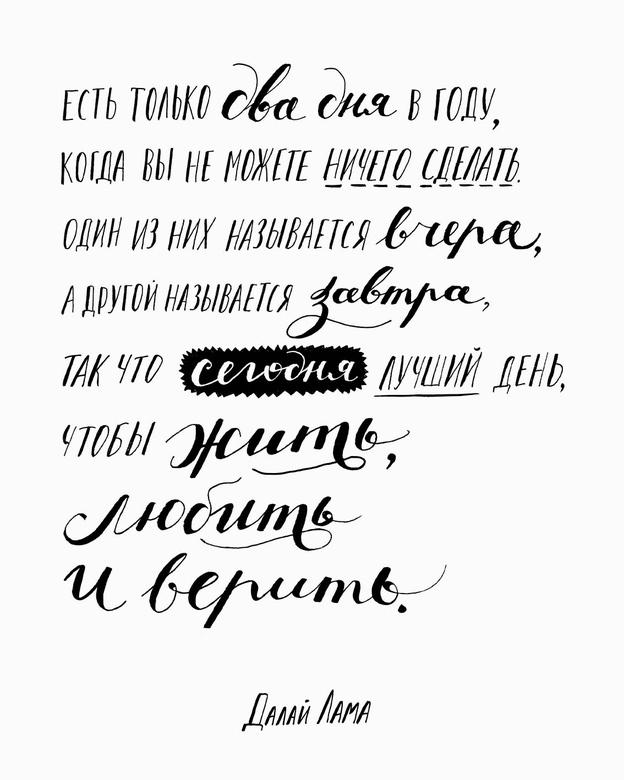 ЕСТЬ ТОЛЬКО два дня В ГОДУ,
КОГДА ВЫ НЕ МОЖЕТЕ НИЧЕГО СДЕЛАТЬ.
ОДИН ИЗ НИХ НАЗЫВАЕТСЯ вчера,
А ДРУГОЙ НАЗЫВАЕТСЯ завтра,
ТАК ЧТО сегодня ЛУЧШИЙ ДЕНЬ,
ЧТОБЫ жить,
любить
и верить.
ДАЛАЙ ЛАМА